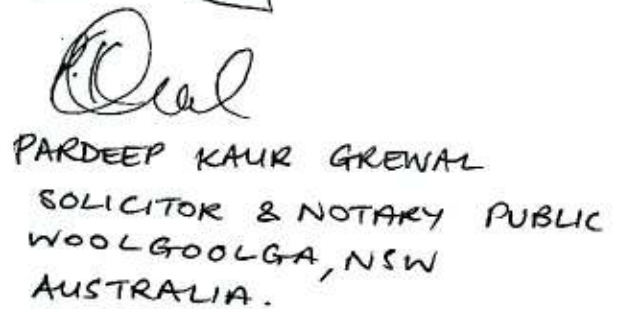 PARDEEP KAUR GREWAL
SOLICITOR & NOTARY PUBLIC
WOOLGOOLGA, NSW
AUSTRALIA.